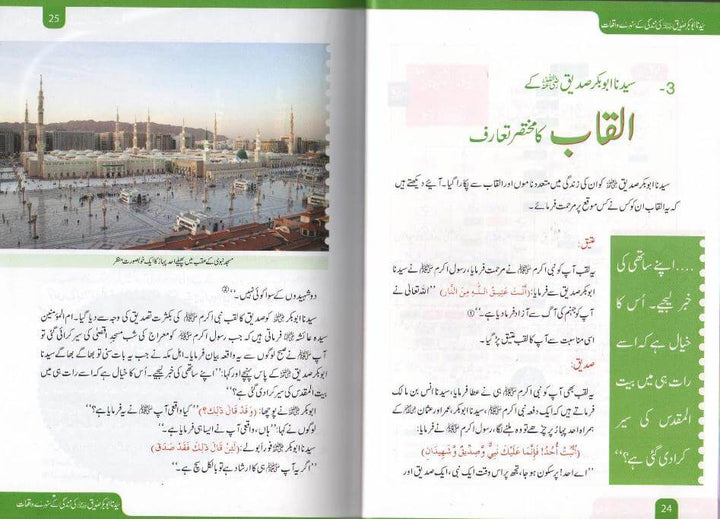 سیدنا ابوبکر صدیق ﷜ کی زندگی کے سنہرے واقعات
3- سیدنا ابوبکر صدیق ﷜ کے
القاب کا مختصر تعارف
سیدنا ابوبکر صدیق ﷜ کو ان کی زندگی میں متعدد ناموں اور القاب سے پکارا گیا۔ آیئے دیکھتے ہیں
کہ یہ القاب ان کو کس نے کس موقع پر مرحمت فرمائے۔
عتیق:
یہ لقب آپ کو نبی اکرم ﷺ نے مرحمت فرمایا، رسول اکرم ﷺ نے سیدنا
ابوبکر صدیق سے فرمایا: (أَنْتَ عَتِيقُ اللَّهِ مِنَ النَّارِ) ’’اللہ تعالیٰ نے
آپ کو جہنم کی آگ سے آزاد فرما دیا ہے۔‘‘①
اسی مناسبت سے آپ کا لقب عتیق پڑ گیا۔
صدیق:
یہ لقب بھی آپ کو نبی اکرم ﷺ ہی نے عطا فرمایا، سیدنا انس بن مالک
فرماتے ہیں کہ ایک دفعہ نبی اکرم ﷺ، سیدنا ابوبکر، عمر اور عثمان ﷢ کے
ہمراہ احد پہاڑ پر چڑھے تو وہ ہلنے لگا، رسول اکرم ﷺ نے فرمایا:
(اُثْبُتْ أُحُدُ! فَإِنَّمَا عَلَيْكَ نَبِيٌّ وَصِدِّيقٌ وَشَهِيدَانِ)
’’اے احد! پرسکون ہو جا، تجھ پر اس وقت ایک نبی، ایک صدیق اور
....اپنے ساتھی کی
خبر لیجیے۔ اُس کا
خیال ہے کہ اسے
رات ہی میں بیت
المقدس کی سیر
کرا دی گئی ہے؟‘‘
24
25
مسجد نبوی کے عقب میں پھیلے احد پہاڑ کا ایک خوبصورت منظر
دو شہیدوں کے سوا کوئی نہیں۔‘‘②
سیدنا ابوبکر صدیق ﷜ کو صدیق کا لقب نبی اکرم ﷺ کی بکثرت تصدیق کی وجہ سے دیا گیا۔ ام المؤمنین
سیدہ عائشہ فرماتی ہیں کہ جب رسول اکرم ﷺ کو معراج کی شب مسجد اقصیٰ کی سیر کرائی گئی تو
آپ ﷺ نے صبح لوگوں سے یہ واقعہ بیان فرمایا۔ اہل مکہ نے جب یہ بات سنی تو بھاگے بھاگے سیدنا
ابوبکر صدیق ﷜ کے پاس پہنچے اور کہا: ’’اپنے ساتھی کی خبر لیجیے۔ اُس کا خیال ہے کہ اسے رات ہی میں بیت
المقدس کی سیر کرا دی گئی ہے؟‘‘
ابوبکر ﷜ نے پوچھا: (وَقَدْ قَالَ ذٰلِكَ؟) ’’کیا واقعی آپ ﷺ نے یہ فرمایا ہے؟‘‘
لوگوں نے کہا: ’’ہاں، واقعی آپ نے ایسا ہی فرمایا ہے۔‘‘
سیدنا ابوبکر ﷜ فوراً بولے: (لَئِنْ قَالَ ذٰلِكَ فَقَدْ صَدَقَ)
’’اگر یہ آپ ﷺ ہی کا ارشاد ہے تو بالکل سچ ہے۔‘‘
سیدنا ابوبکر صدیق ﷜ کی زندگی کے سنہرے واقعات